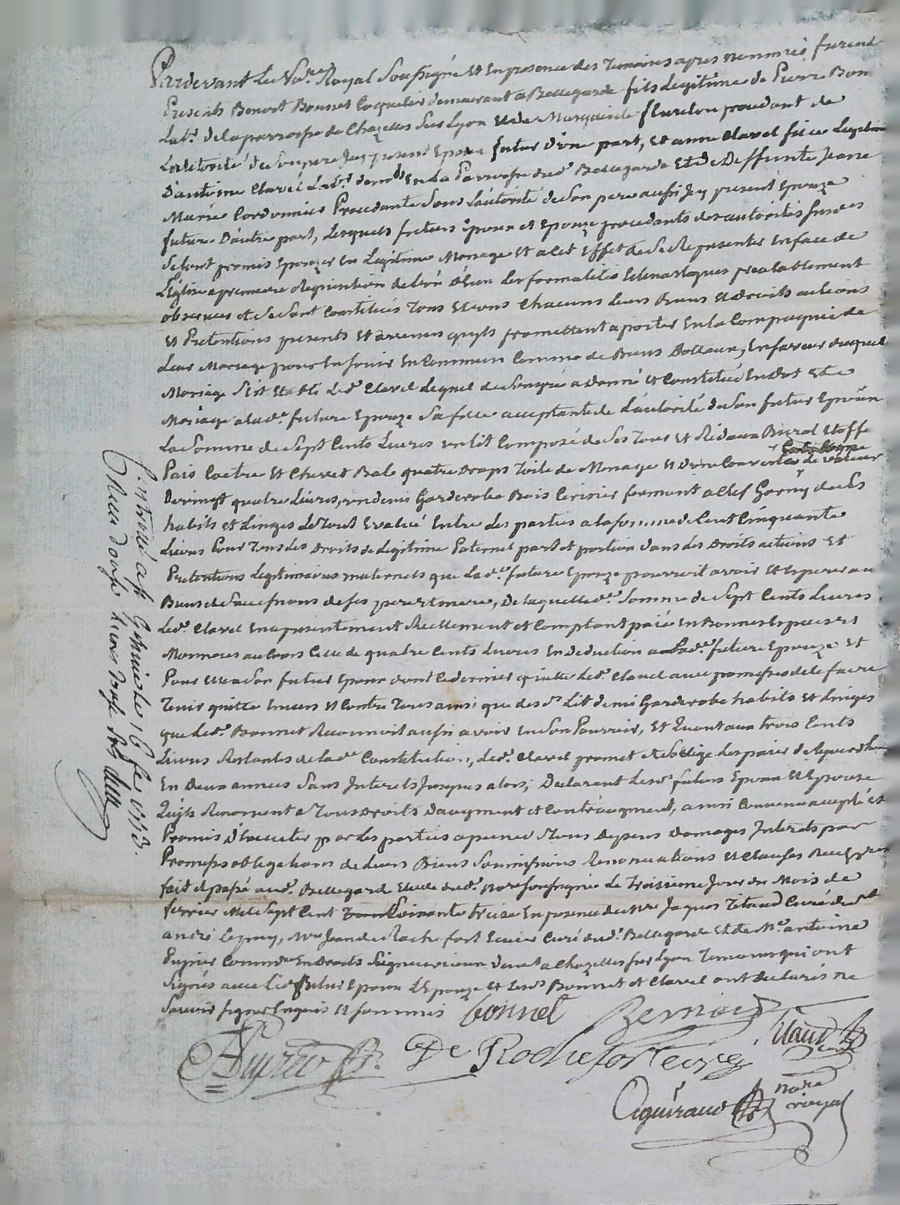 Pardevant Le No.re Royal Soussigné et En presence des Temoins apres nommés furent
Presents Benoit Bonnet demeurant a Bellegarde fils Legitime de Pierre Bon
Lab.r de la parroisse de Chazelles sur Lyon et de Marguerite fleurdon procedant de
L'autorité de son pere Jcy present Epoux futur d'une part, et anne Clavel fille Legitime
D'antoine Clavel Lab.r dem.t En La Parroisse dud. Bellegarde Et de Deffunte Jeane
Marie Cordonnier Procedante Sous L'autorité de Son pere aussi Jcy present Epouze
future D'autre part, Lesquels futurs Epoux et Epouze procedants des autorités susd.es
Se sont promis Epouzer En Legitime Mariage Et a cet Effet de Se Representer En face de
L'Eglise a premiere Requisition de L'un d'eux Les formalités prealablement
observées et Se Sont Constitués Tous et Uns Chacuns Leurs Biens et Droits actions
Et Pretentions presents Et avenir quyls promettent aporter En La Compagnie de
Leur Mariage pour En Jouir En Commun Comme de Biens Dotaux, En faveur duquel
Mariage S'est Etabli Led. Clavel Lequel de Son gré a donné et Constitué En dot
Mariage a lad.e future Epouze Sa fille acceptante de L'autorité de Son futur Epoux
La Somme de Sept Cents Livres un Lit Composé de Ses Tour et Rideaux Burat Etoffe
Païs Coetre Et Chevet Bale quatre Draps Toile de Menage et Une Couverte de valeur
De vingt quatre Livres, un demi Garderobe Bois Cerisier fermant a Clef Garny de Ses
habits et Linges Le Tout Evalué Entre Les parties a la somme de Cent Cinquante
Livres Pour Tous Les Droits de Legitime Paternel part et portion dans Les Droits actions Et
Pretentions Legitimaires maternels que Lad.e future Epouze pourroit avoir Et Esperer au
Biens de Ses pere et mere, De laquelle d.e Somme de Sept Cents Livres
Led. Clavel En a presentement Reellement et Comptant païé En Bonnes Especes et
Monnoies au Cours Celle de quatre Cents Livres En deduction a Lad.e future Epouze Et
Pour Elle a Son futur Epoux dont Ce dernier quitte Led. Clavel avec promesse de Le faire
Tenir quitte Envers et Contre Tous ainsi que desd. Lit demi Garderobe habits Et Linges
que Led. Bonnet Reconnoit aussi avoir En Son Pouvoir, Et Quant aux trois Cents
Livres Restantes de lad.e Constitution, Led. Clavel promet et S'oblige Les païer d'aujourd'huy
En Deux années Sans Interets Jusques alors, Declarent Lesd. futurs Epoux Et Epouse
Quils Renoncent a Tous Droits D'augment et Contraugment, ainsi Convenu accepté et
Promis D'executer par Les parties a peine de Tous Depens Domages Interets par
Promesses obligations de Leurs Biens Soumissions Renonciations Et Clauses
fait et passé aud. Bellegarde Etude du d. Nore soussigné Le Troisieme Jour du Mois de
fevrier Mil Sept Cent Soixante treize En presence de M.re Jaques Curé de St
andré Mre Jean de Roche fort Ecuier Curé dud. Bellegarde Et de M.e antoine
Pupier Comm.re En Droits Seigneuriaux dem.t a Chazelles sur Lyon Temoins qui ont
Signés avec Led. futur Epoux L'Epouze et Lesd. Bonnet et Clavel ont declarés ne
Scavoir Signer Enquis Et Sommés
bonnet
De Rochefort curé
Pupier
Aguiraud
nore
royal
Controllé a St Galmier le 16 fev. 1773.
Reçu douze livres